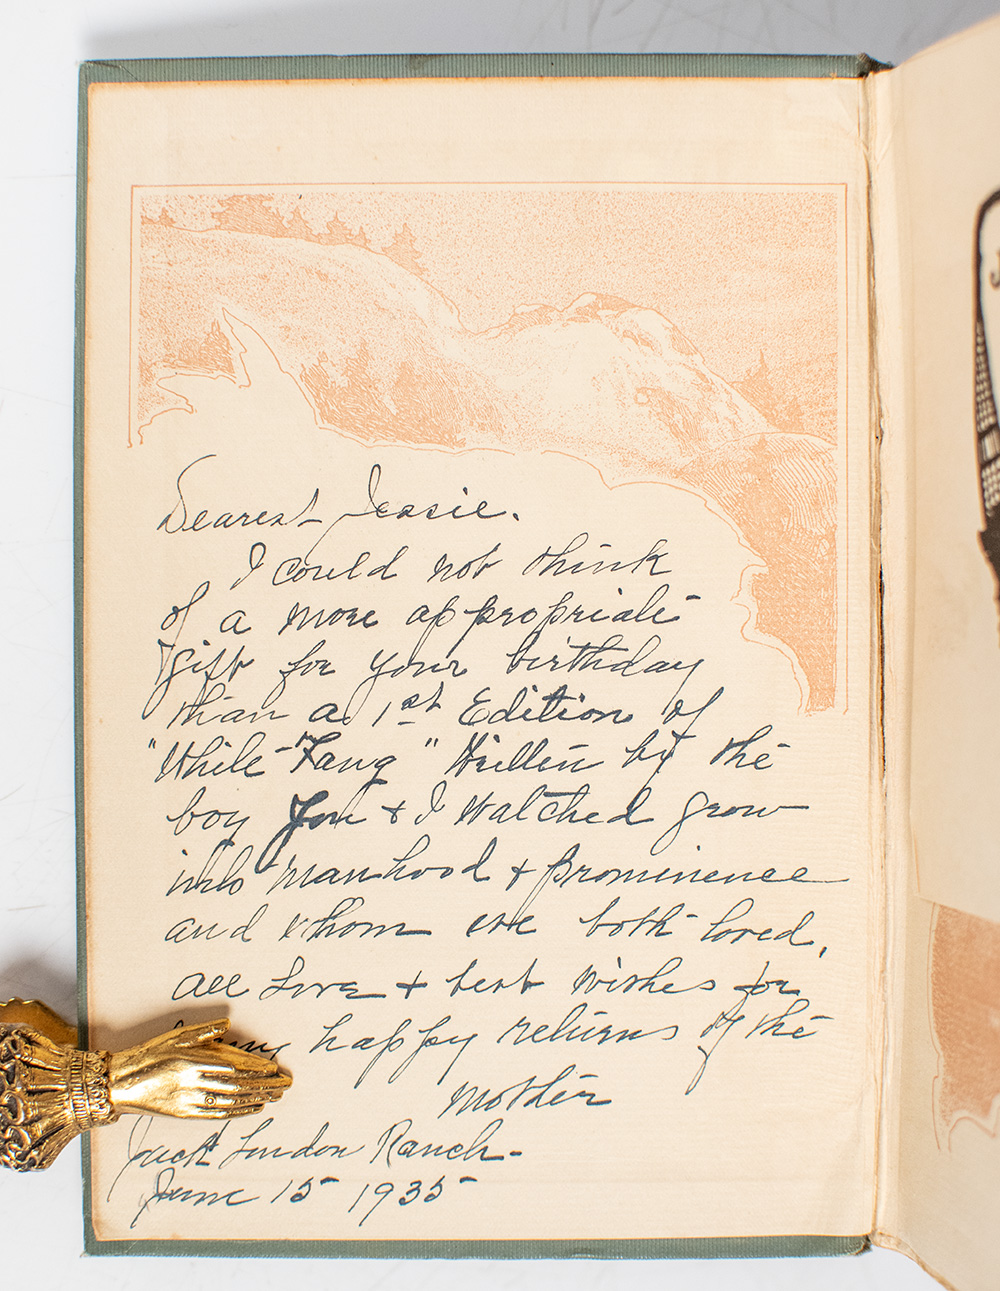 Dearest Jessie.
I could not think
of a more appropriate
gift for your birthday
than a 1st Edition of
"White Fang" Written by the
boy you & I watched grow
into manhood & prominence
and whom we both loved,
all Love & best wishes for
happy returns of the
Mother
Jack London Ranch-
June 15 1935